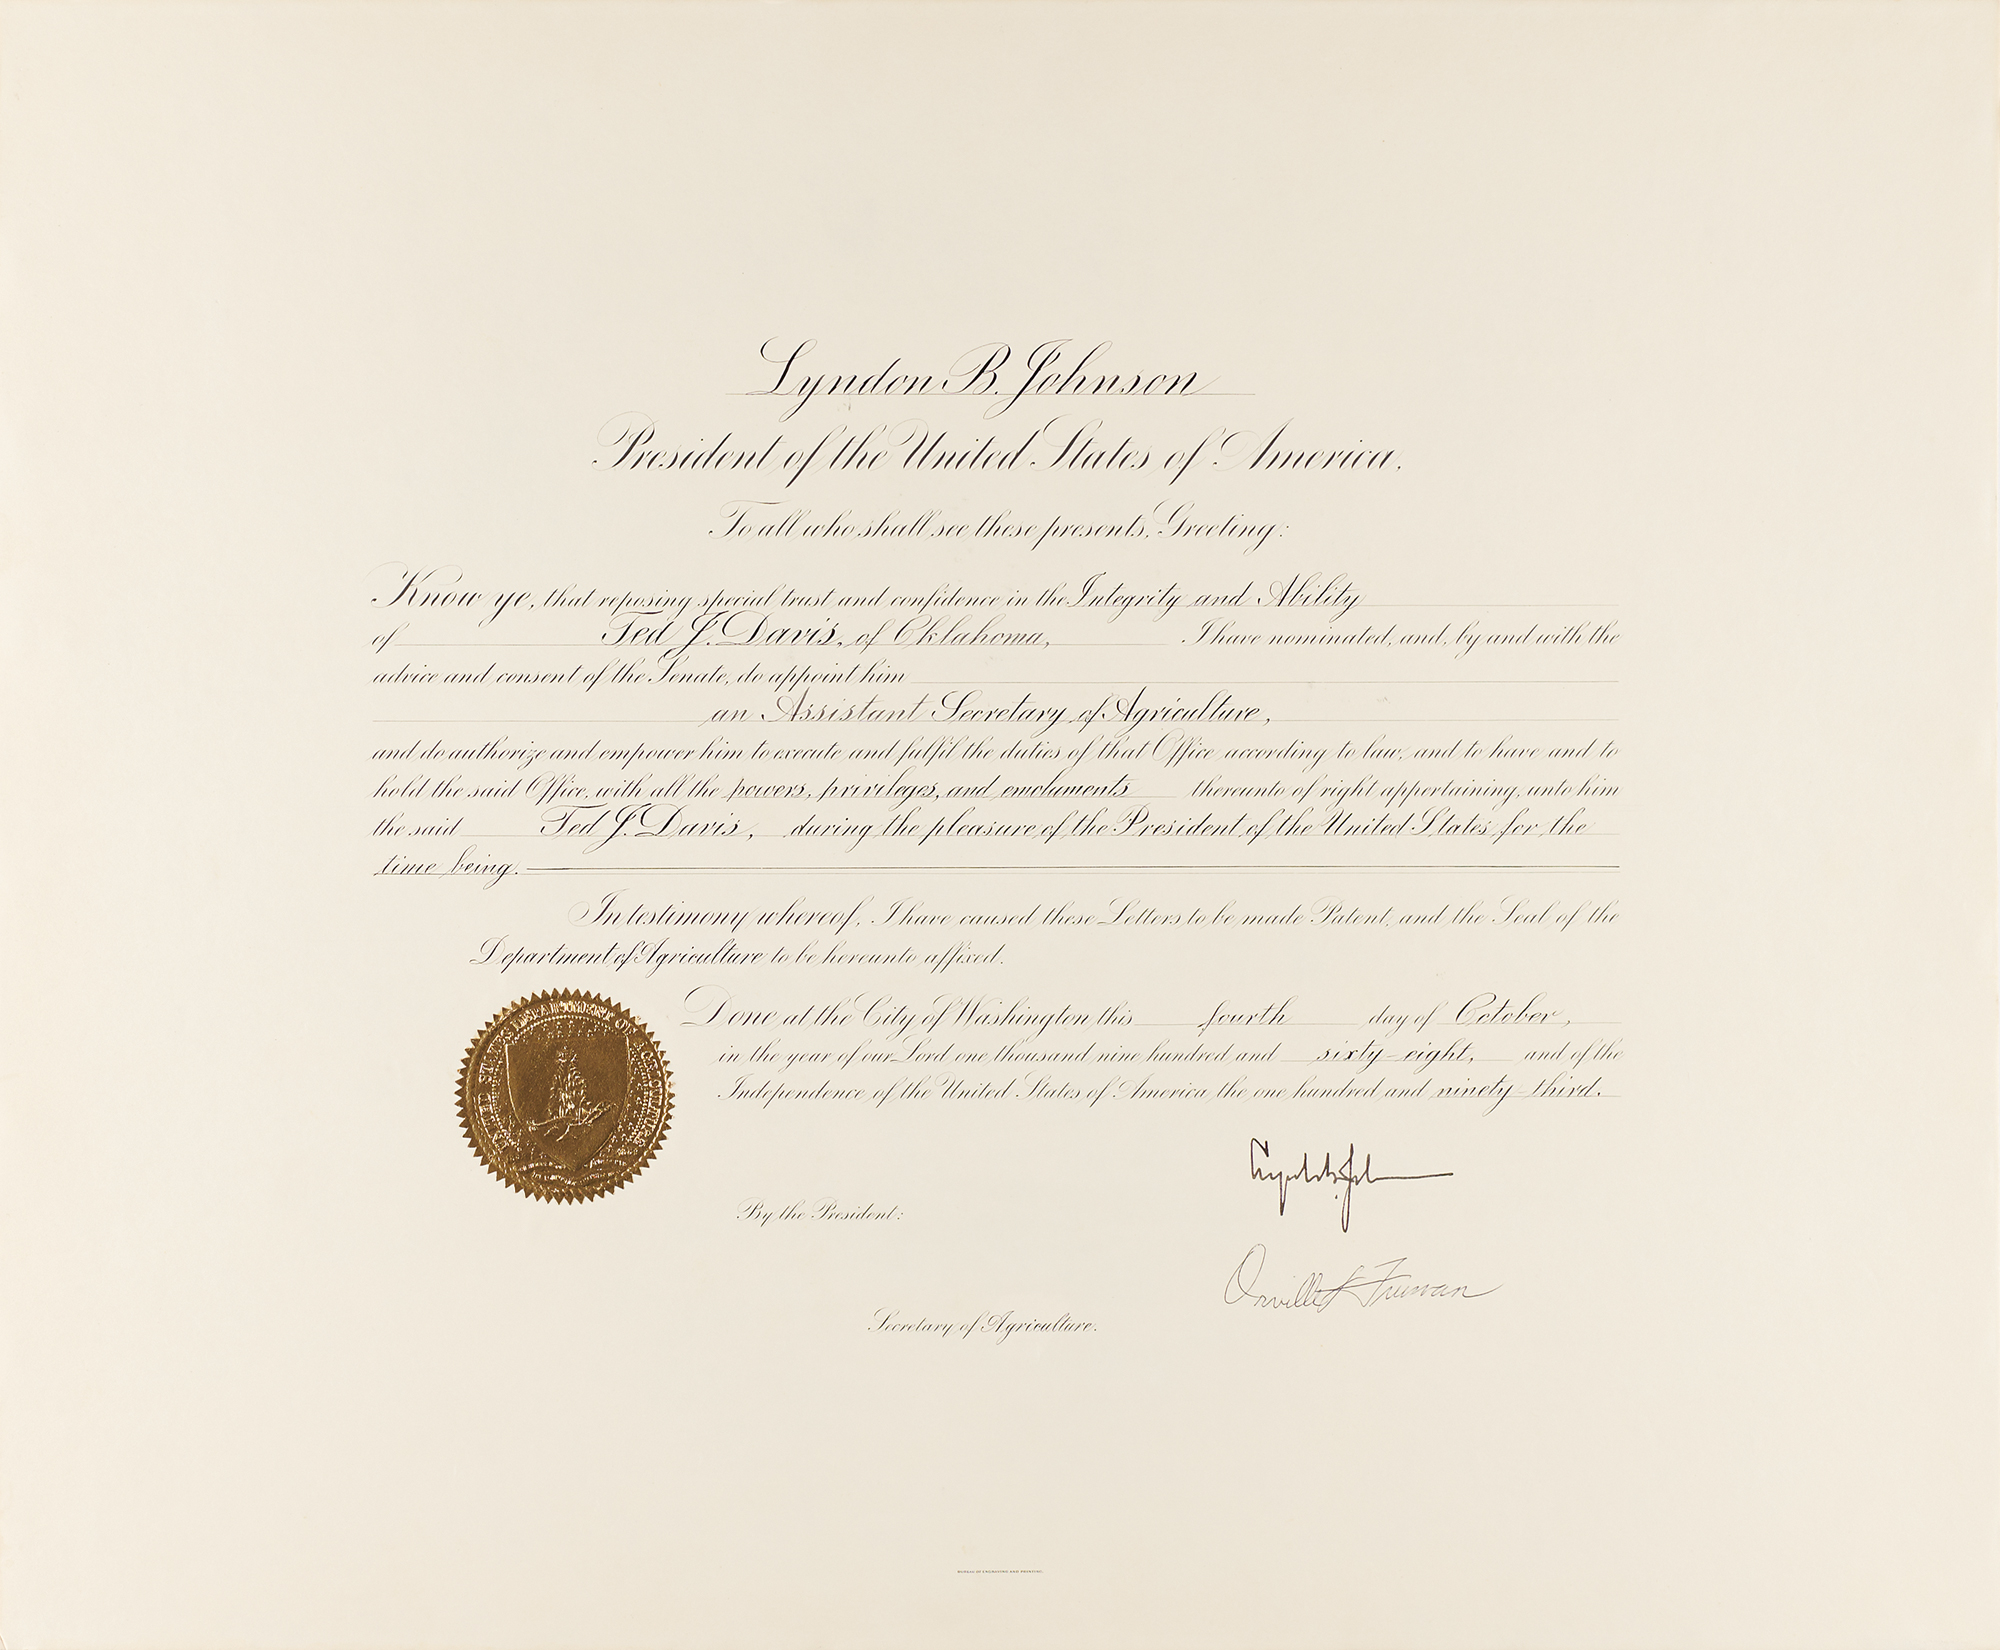 Lyndon B. Johnson
President of the United States of America.
To all who shall see these presents, Greeting:
Know ye, that reposing special trust and confidence in the Integrity and Ability
of Ted J. Davis, of Oklahoma, I have nominated, and, by and with the
advice and consent of the Senate, do appoint him
an Assistant Secretary of Agriculture,
and do authorize and empower him to execute and fulfil the duties of that Office according to law, and to have and to
hold the said Office, with all the powers, privileges, and emoluments thereunto of right appertaining, unto him
the said Ted J. Davis, during the pleasure of the President of the United States for the
time being.
In testimony whereof, I have caused these Letters to be made Patent, and the Seal of the
Department of Agriculture to be hereunto affixed.
Done at the City of Washington this fourth day of October,
in the year of our Lord one thousand nine hundred and sixty-eight, and of the
Independence of the United States of America the one hundred and ninety-third.
UNITED STATES DEPARTMENT OF AGRICULTURE
By the President:
Orville L Freeman
Secretary of Agriculture.
BUREAU OF ENGRAVING AND PRINTING.